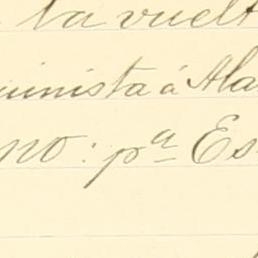 la vuelt
uinista á Ala
no: pª Es